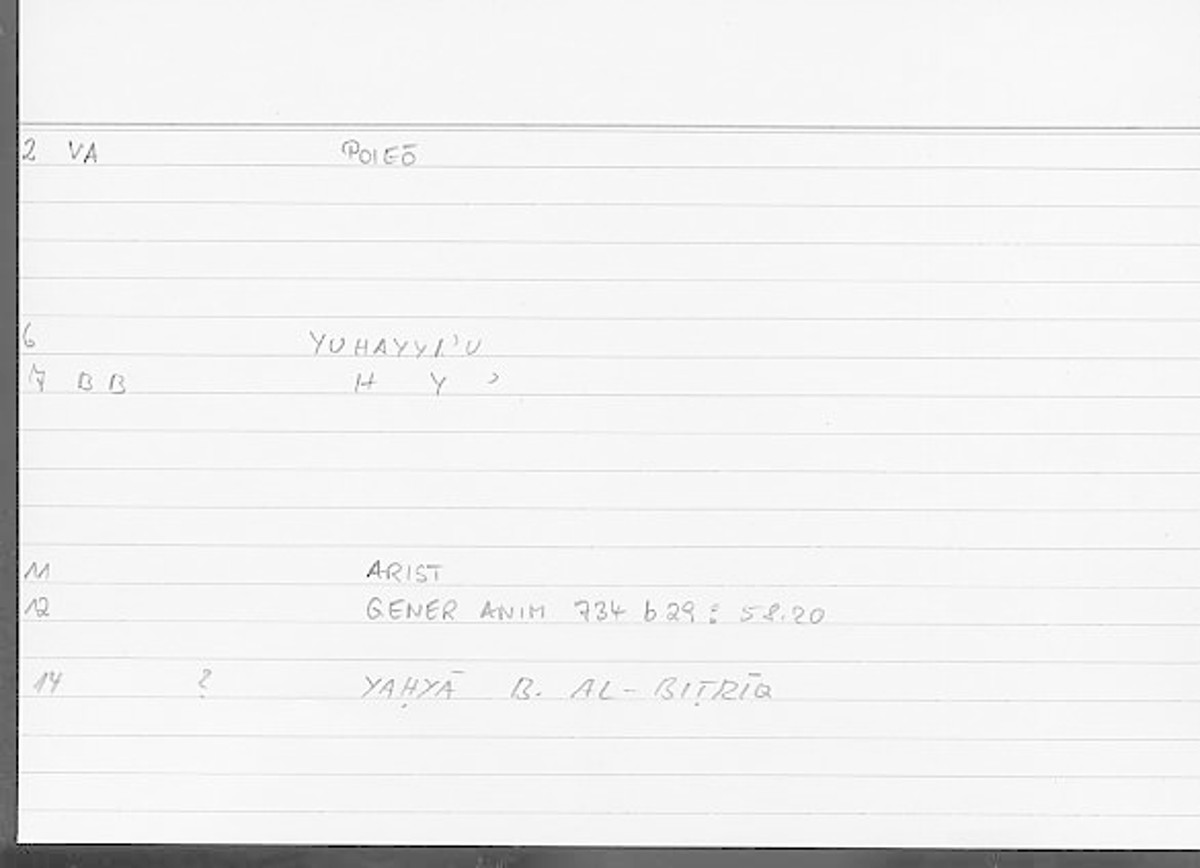 2 VA POIEŌ
6 YUHAYYI'U
7 BB H Y ʾ
11 ARIST
12 GENER ANIM 734 b 29 : 58.20
14 ? YAḤYĀ B. AL-BIṬRĪQ